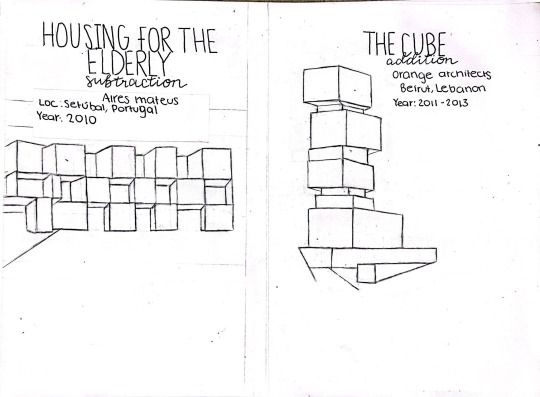 HOUSING FOR THE
ELDERLY
subtraction
Aires mateus
Loc: Setúbal, Portugal
Year: 2010
THE CUBE
addition
Orange architects
Beirut, Lebanon
Year: 2011-2013